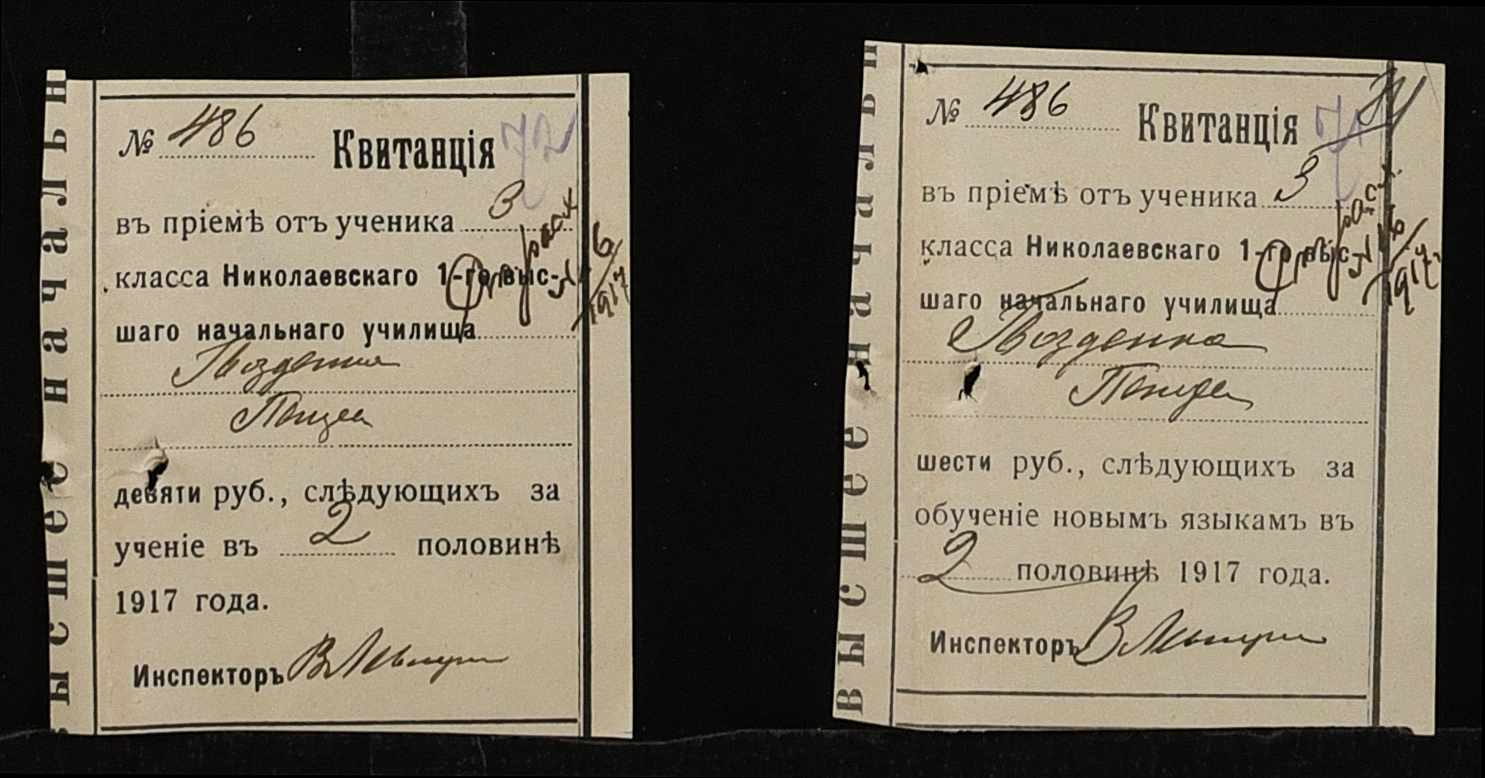 № 486 Квитанція 72
въ пріемѣ отъ ученика 3
класса Николаевскаго 1-го выс-
шаго начальнаго училища
Гвозденка
девяти руб., слѣдующихъ за
ученіе въ 2 половинѣ
1917 года.
Инспекторъ В
высшее начальн
1917
№ 486 Квитанція 71
въ пріемѣ отъ ученика 3
класса Николаевскаго 1-го выс-
шаго начальнаго училища
Гвозденка
шести руб., слѣдующихъ за
обученіе новымъ языкамъ въ
2 половинѣ 1917 года.
Инспекторъ В
высшее начальн
1917